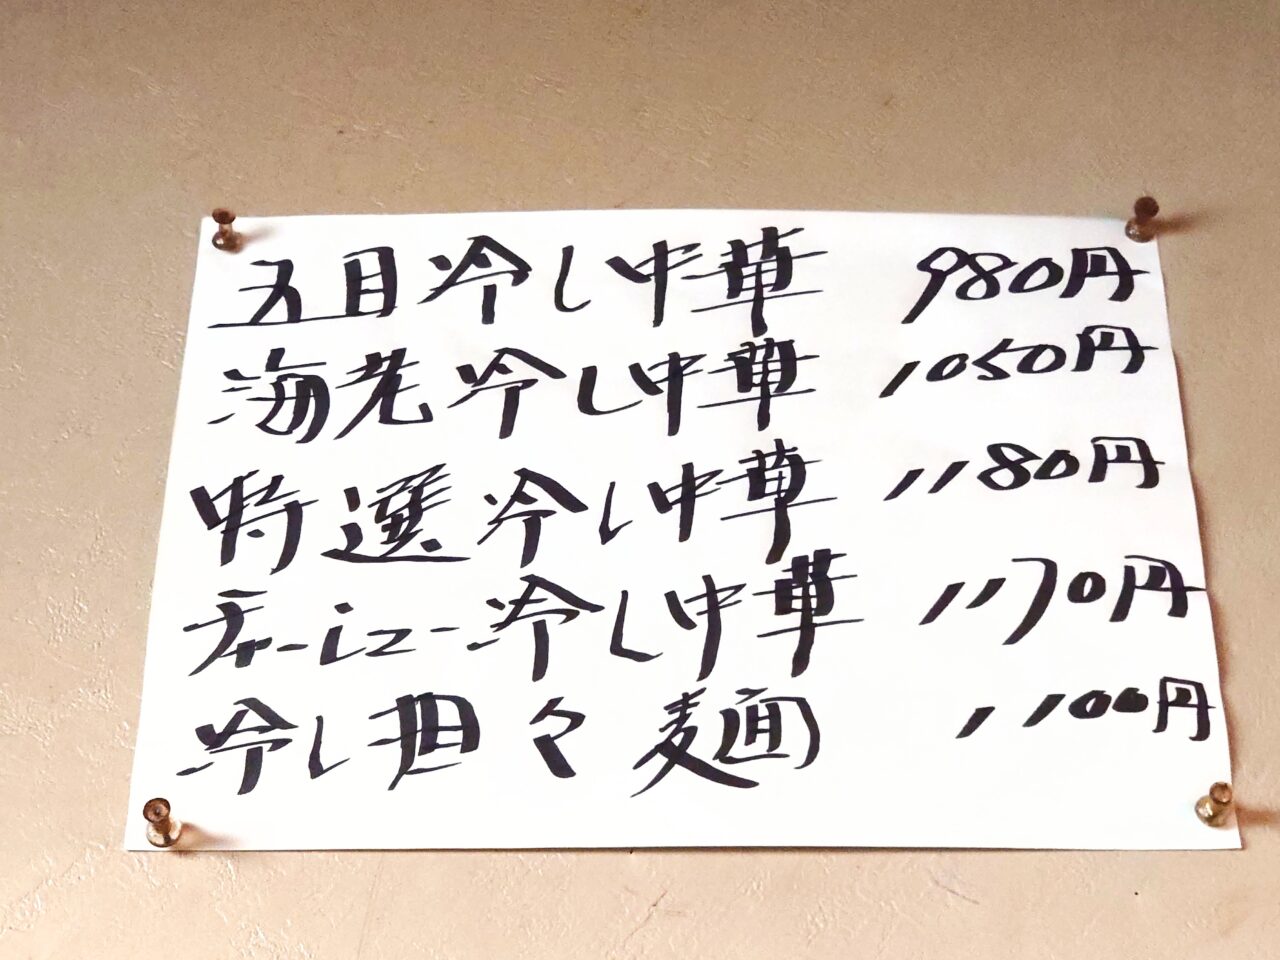 五目冷し中華 980円
海老冷し中華 1050円
特選冷し中華 1180円
チャーシュー冷し中華 1170円
冷し担々麺 1,100円